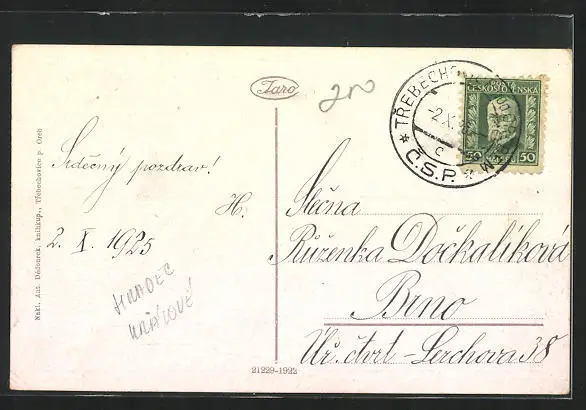 Jaro
200
Srdečný pozdrav!
H.
2. X. 1925
HRADEC
KRÁLOVÉ
Nakl. Ant. Dědourek, knihkup., Třebechovice p. Oreb
21229-1922
TŘEBECHOVICE
-2.X.
c
Č.S.P.
ČESKOSLOVENSKÁ
50 50
Slečna
Růženka Dočkalíková
Brno
Úř. čtvrť - Lerchova 38